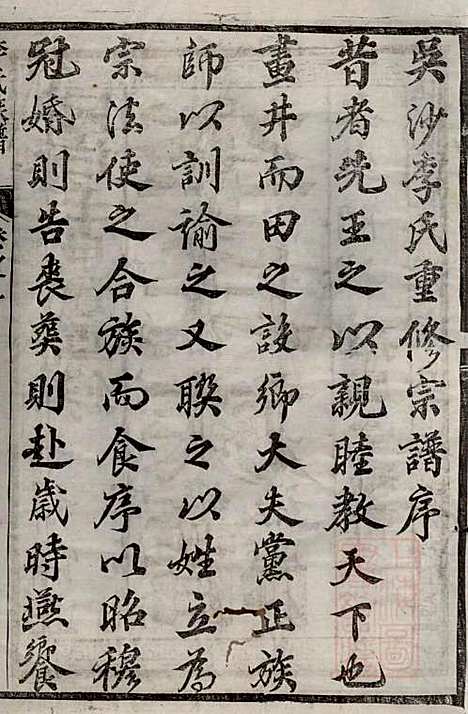 吳沙李氏重修宗譜序
昔者先王之以親睦教天下也
畫井而田之設鄉大夫黨正族
師以訓諭之又聯之以姓立為
宗法使之合族而食序以昭穆
冠婚則告喪葬則赴歲時燕饗